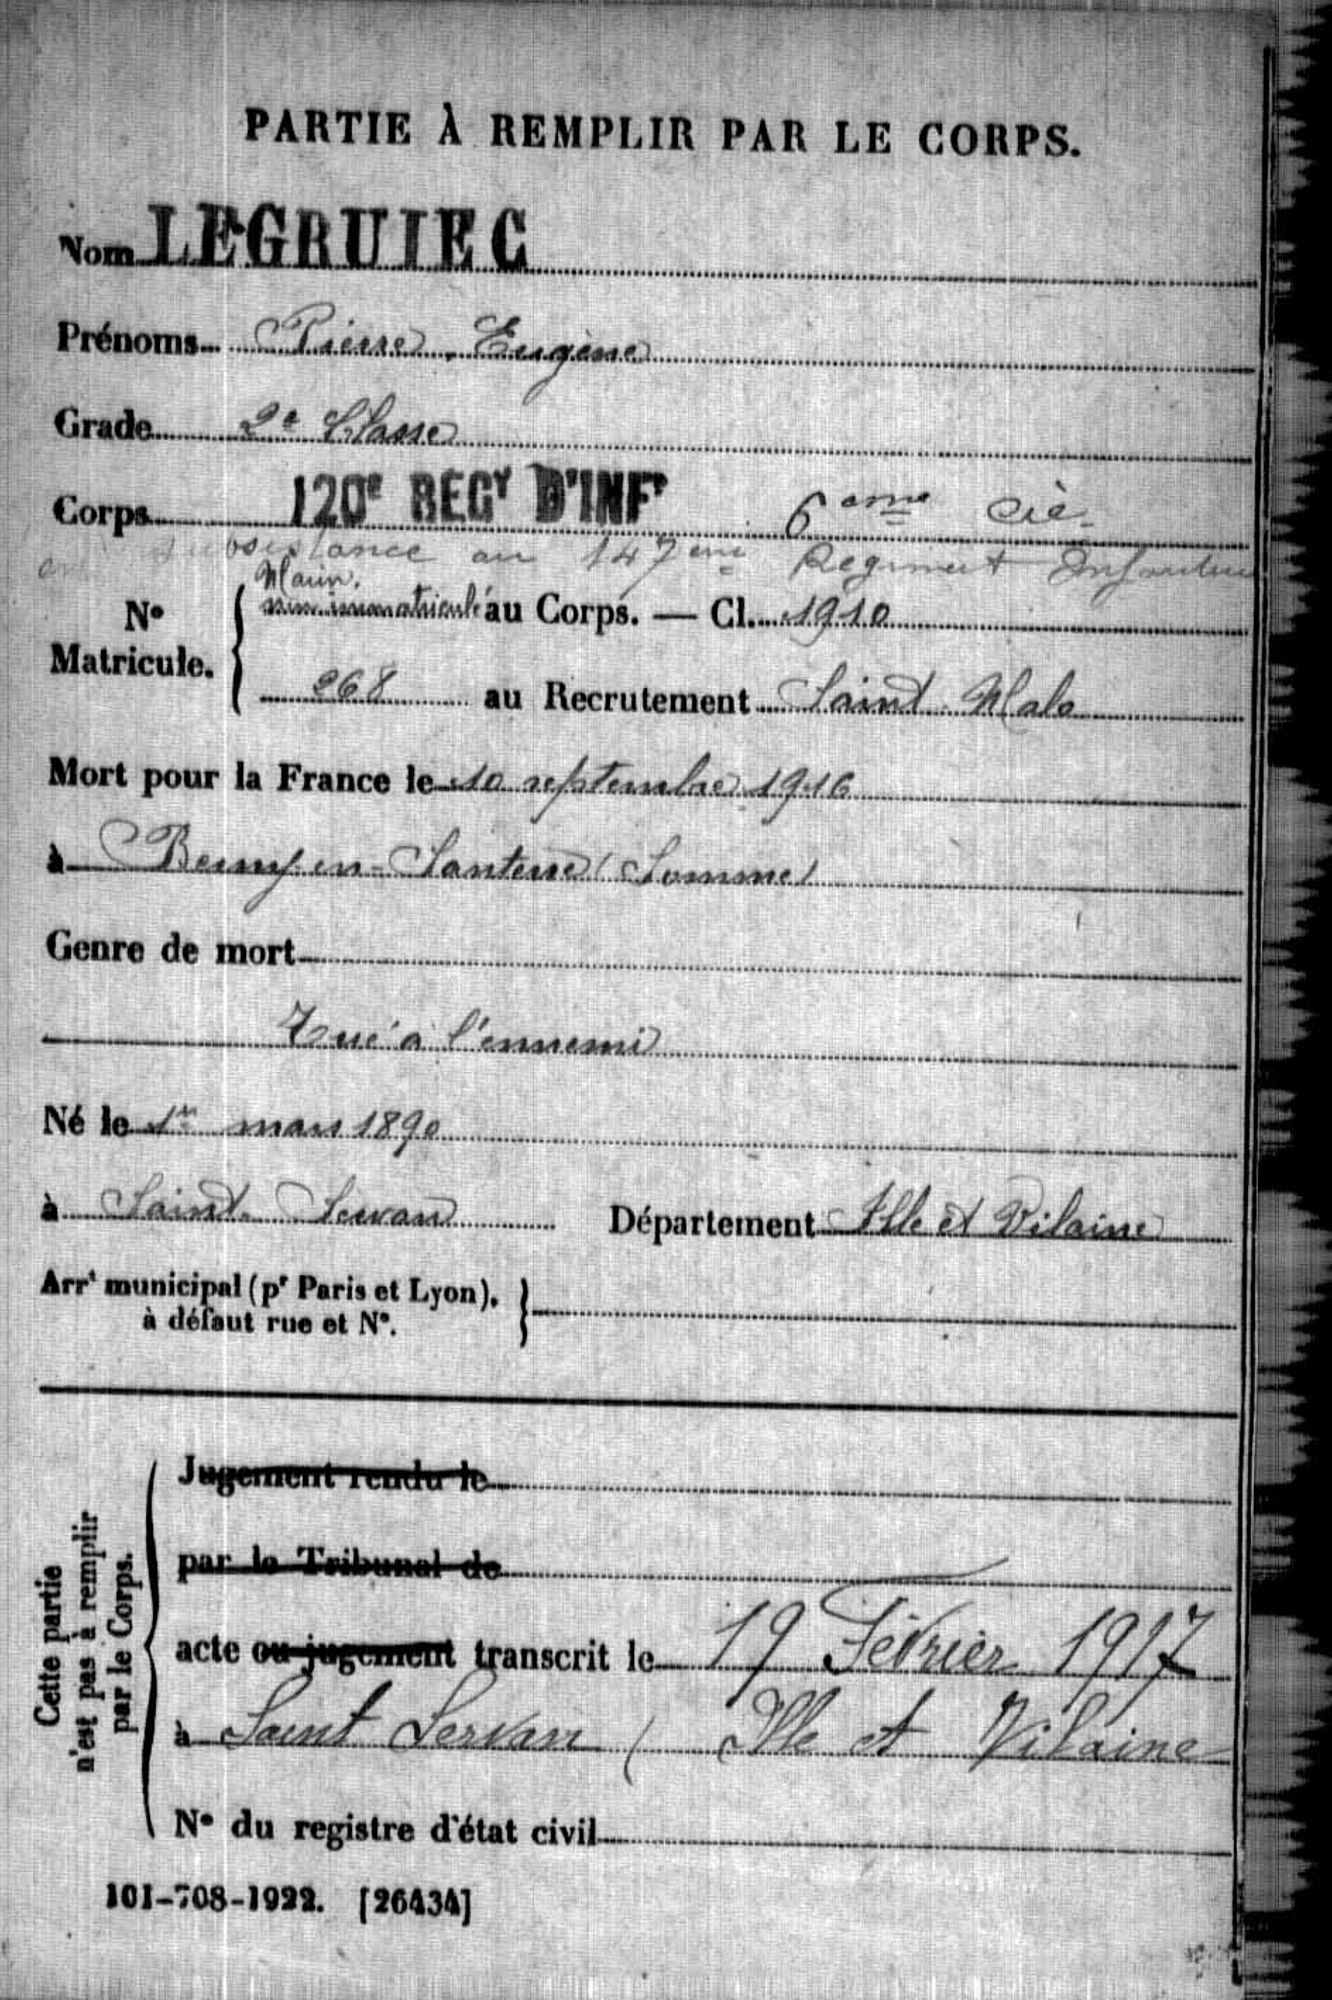 PARTIE À REMPLIR PAR LE CORPS.
Nom LE GRUIEC
Prénoms Pierre, Eugène
Grade 2e Classe
Corps 120e REGt D'INFie 6eme Cie
en subsistance au 147eme Regiment Infanterie
No Matricule. { Marin. non immatriculé au Corps. — Cl. 1910
268 au Recrutement Saint Malo
Mort pour la France le 10 septembre 1916
à Berny-en-Santerre (Somme)
Genre de mort
Tué à l'ennemi
Né le 1er mars 1890
à Saint-Servan Département Ille et Vilaine
Arrt municipal (pr Paris et Lyon), }
à défaut rue et No.
Cette partie
n'est pas à remplir
par le Corps.
Jugement rendu le
par le Tribunal de
acte ou jugement transcrit le 19 Février 1917
à Saint Servan ( Ille et Vilaine
No du registre d'état civil
101-708-1922. [26434]